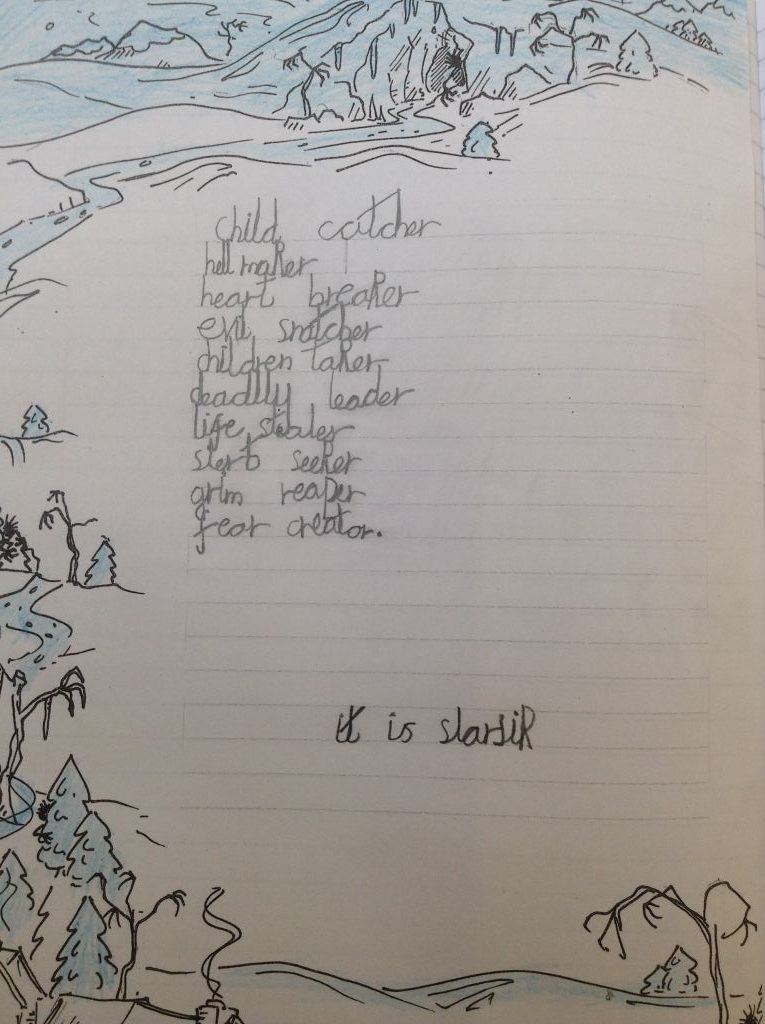 child catcher
hell maker
heart breaker
evil snatcher
children taker
deadlly leader
life stealer
seeker
grim reaper
fear creator.
it is